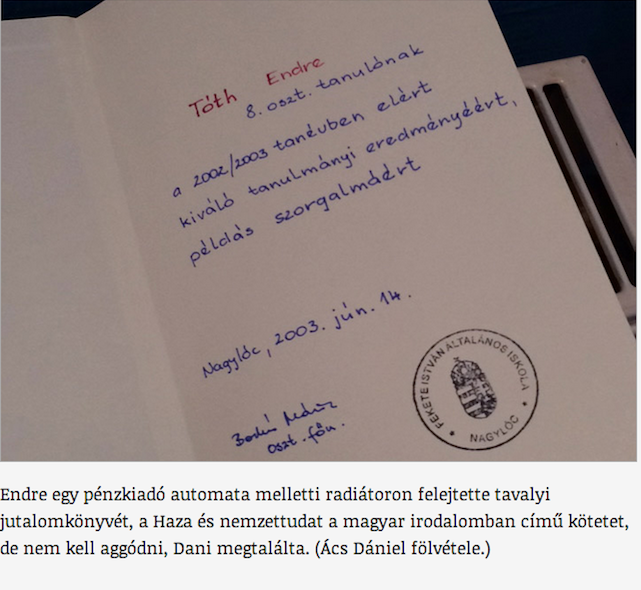 Tóth Endre
8. oszt. tanulónak
a 2002/2003 tanévben elért
kiváló tanulmányi eredményéért,
példás szorgalmáért
Nagylóc, 2003. jún. 14.
oszt. főn.
FEKETE ISTVÁN ÁLTALÁNOS ISKOLA
NAGYLÓC
Endre egy pénzkiadó automata melletti radiátoron felejtette tavalyi
jutalomkönyvét, a Haza és nemzettudat a magyar irodalomban című kötetet,
de nem kell aggódni, Dani megtalálta. (Ács Dániel fölvétele.)